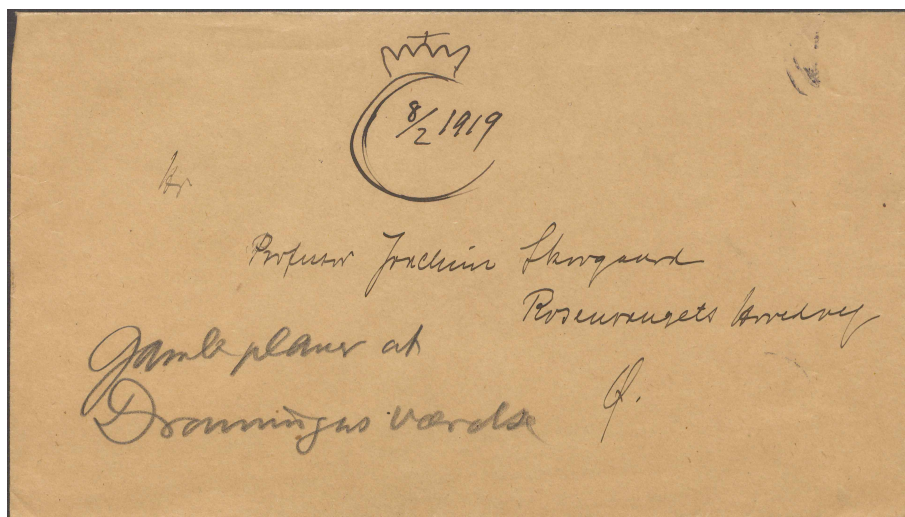 8/2 1919
Hr.
Professor Joachim Skovgaard
Rosenvængets Hovedvej
Ø.
Gamle planer at
Dronningens værelse